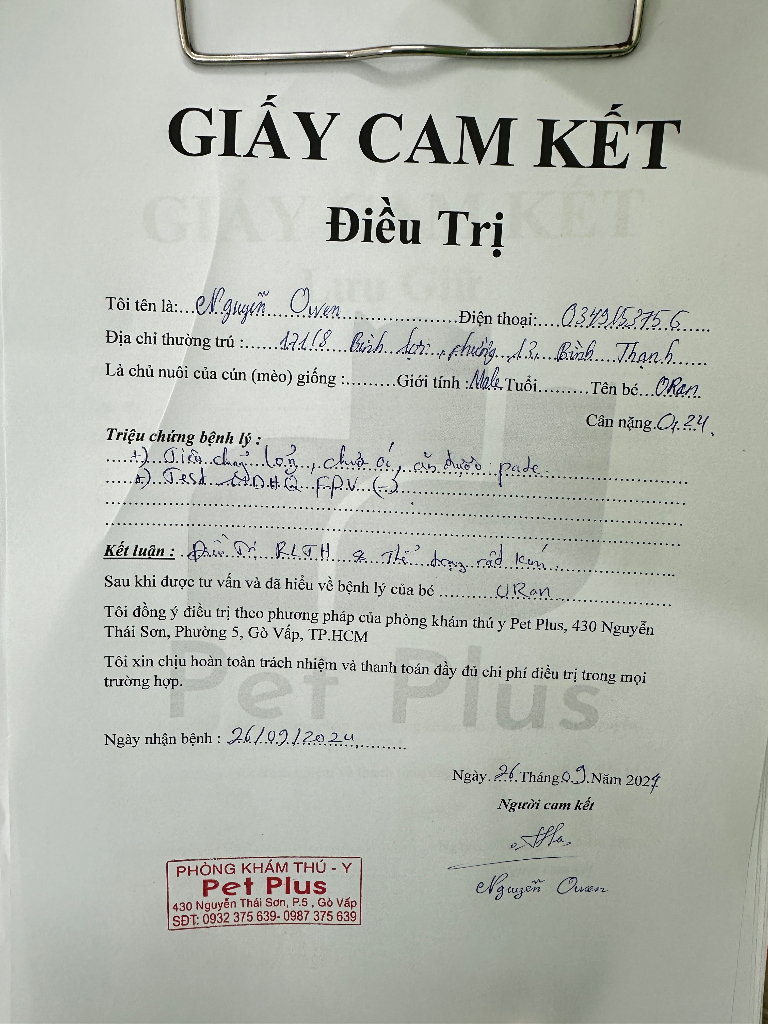 GIẤY CAM KẾT
Điều Trị
Tôi tên là:...Nguyễn Owen..................Điện thoại:....0349153756.....
Địa chỉ thường trú :......171/8 Bình Lợi, phường 13, Bình Thạnh......
Là chủ nuôi của cún (mèo) giống :.........Giới tính :Male Tuổi.........Tên bé..ORan
Cân nặng.0,24.
Triệu chứng bệnh lý :
+) Tiêu chảy lỏng, chưa ói, ăn được pate
+) Test FPV (-)
Kết luận : Điều Trị RLTH & Thể trạng rất kém
Sau khi được tư vấn và đã hiểu về bệnh lý của bé ..........ORan..........
Tôi đồng ý điều trị theo phương pháp của phòng khám thú y Pet Plus, 430 Nguyễn
Thái Sơn, Phường 5, Gò Vấp, TP.HCM
Tôi xin chịu hoàn toàn trách nhiệm và thanh toán đầy đủ chi phí điều trị trong mọi
trường hợp.
Pet Plus
Ngày nhận bệnh : 26/09/2024..........
Ngày.26.Tháng 09.Năm 2024
Người cam kết
Nguyễn Owen
PHÒNG KHÁM THÚ - Y
Pet Plus
430 Nguyễn Thái Sơn, P.5 , Gò Vấp
SĐT: 0932 375 639- 0987 375 639